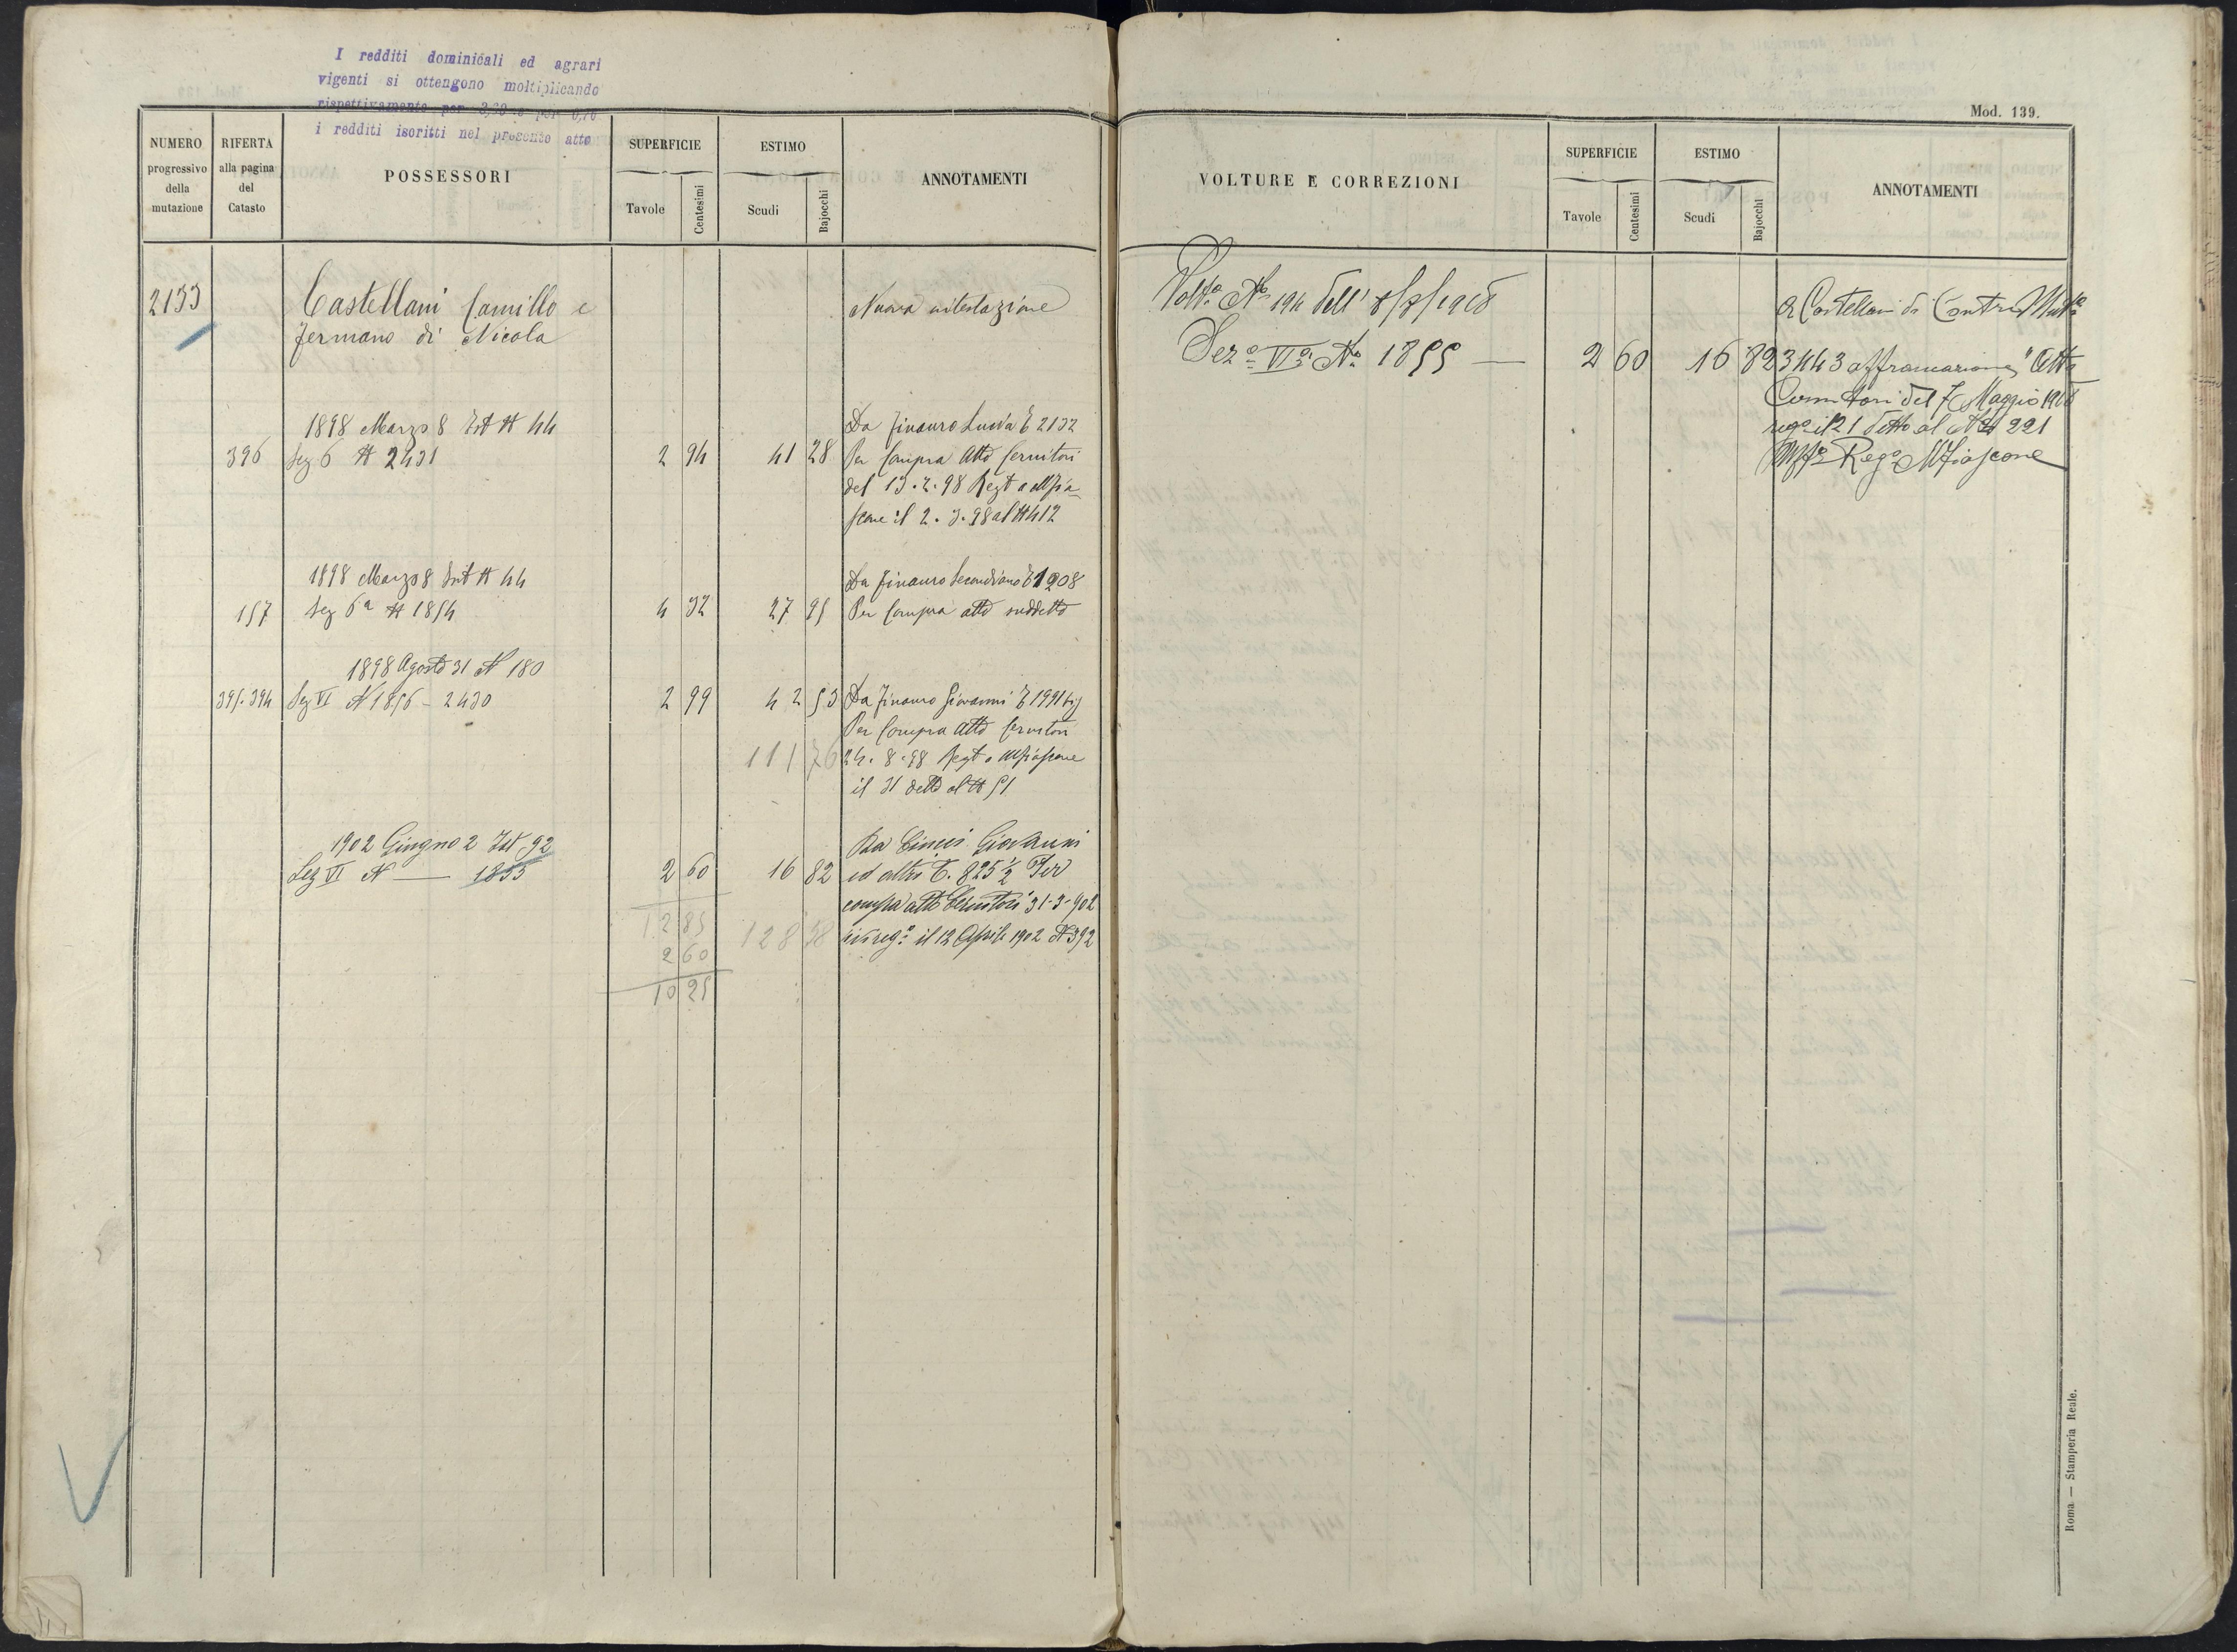 I redditi dominicali ed agrari
vigenti si ottengono moltiplicando
rispettivamente per 3,60 e per 0,70
i redditi iscritti nel presente atto
NUMERO
progressivo
della
mutazione
RIFERTA
alla pagina
del
Catasto
POSSESSORI
SUPERFICIE
Tavole
Centesimi
ESTIMO
Scudi
Bajocchi
ANNOTAMENTI
2133 Castellani Camillo e Nuova intestazione
Fermano di Nicola
1898 Marzo 8 Ist N 44 Da Finauro Lucia E 2132
396 Sez 6 N 2431 2 94 41 28 Per Compra Atto Cernitori
del 13.2.98 Regt a Mfia
scone il 2.3.98 al N 412
1898 Marzo 8 Ist N 44 Da Finauro Secondiano E 1908
157 Sez 6a N 1854 4 32 27 95 Per Compra atto suddetto
1898 Agosto 31 N 180
395.394 Sez VI N 1856 - 2430 2 99 42 53 Da Finauro Giovanni E 1991 bis
Per Compra Atto Cernitori
111 76 24.8.98 Regt a Mfiascone
il 31 detto al N 51
1902 Giugno 2 Ist 92 Da Giovanni
Sez VI N — 1855 2 60 16 82 ed altri E. 825 1/2 Per
compra atto Cernitori 31-3-902
12 85 128 58 reg° il 12 Aprile 1902 N 392
2 60
10 25
Mod. 139.
VOLTURE E CORREZIONI
SUPERFICIE
Tavole
Centesimi
ESTIMO
Scudi
Bajocchi
ANNOTAMENTI
Volta No 194 dell' 8/8/1908 A Castellani di Contro Mut°
Seze VIa No 1855 — 2 60 16 82 3443 affrancazione Atto
Cernitori del 7 Maggio 1908
rego il 21 detto al N 221
Uff° Rego Mfiascone
Roma — Stamperia Reale.